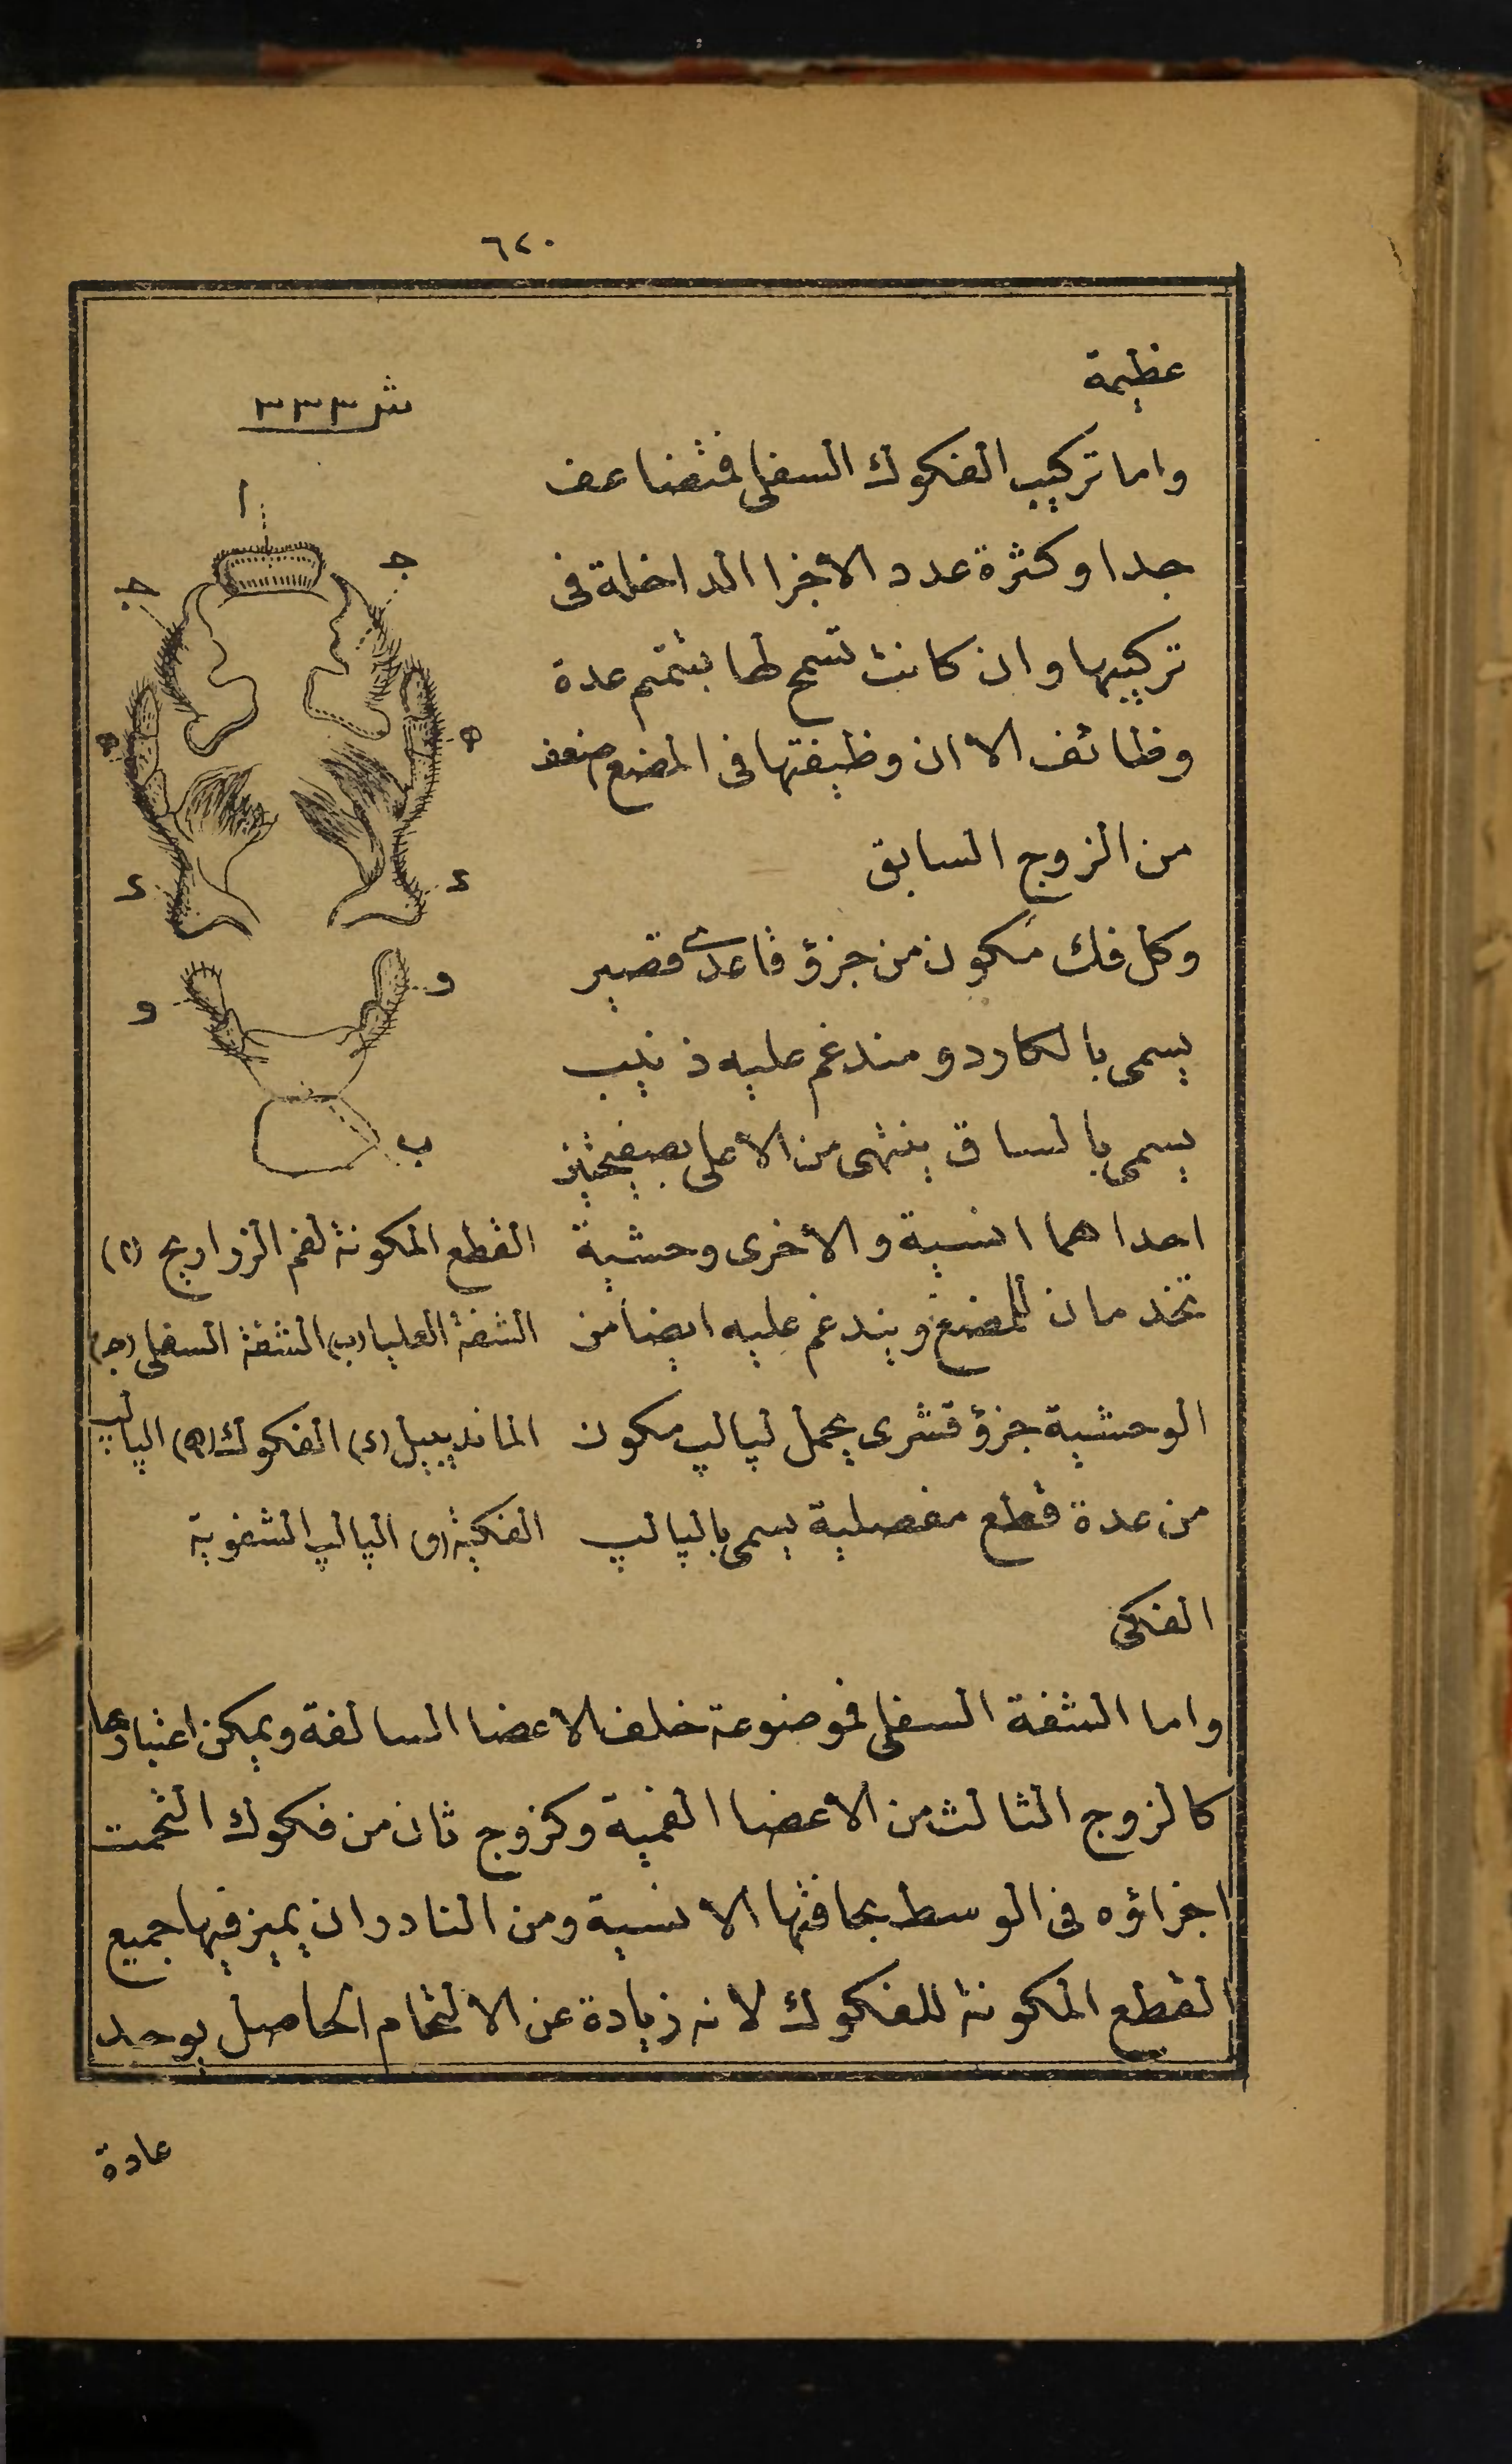 ٦٢٠
عظيمة
واما تركيب الفكوك السفلى فمتضاعف
جدا وكثرة عدد الاجزا الداخلة فى
تركيبها وان كانت تسمح لها بتتميم عدة
وظائف الا ان وظيفتها فى المضغ اضعف
من الزوج السابق
وكل فك مكون من جزؤ قاعدى قصير
يسمى بالكاردو ومندغم عليه ذنيب
يسمى بالساق ينتهى من الأعلى بصفيحتين
احداهما انسية والأخرى وحشية
تخدمان للمضغ ويندغم عليه ايضا من
الوحشية جزؤ قشرى يحمل لپالپ مكون
من عدة قطع مفصلية يسمى بالپالپ
الفكى
شر ٣٣٣
ا
ج
ج
ه
ه
د
د
و
و
ب
القطع المكونة لفم الزراريح (ا)
الشفة العليا (ب) الشفة السفلى (ج)
الماندييل (د) الفكوك (ه) الپالپ
الفكية (و) الپالپ الشفوية
واما الشفة السفلى فموضوعة خلف الاعضا السالفة ويمكن اعتبارها
كالزوج الثالث من الاعضا الفمية وكزوج ثان من فكوك التحمت
اجزاؤه فى الوسط بحافتها الانسية ومن النادر ان يميز فيها جميع
القطع المكونة للفكوك لانه زيادة عن الالتحام الحاصل يوجد
عادة